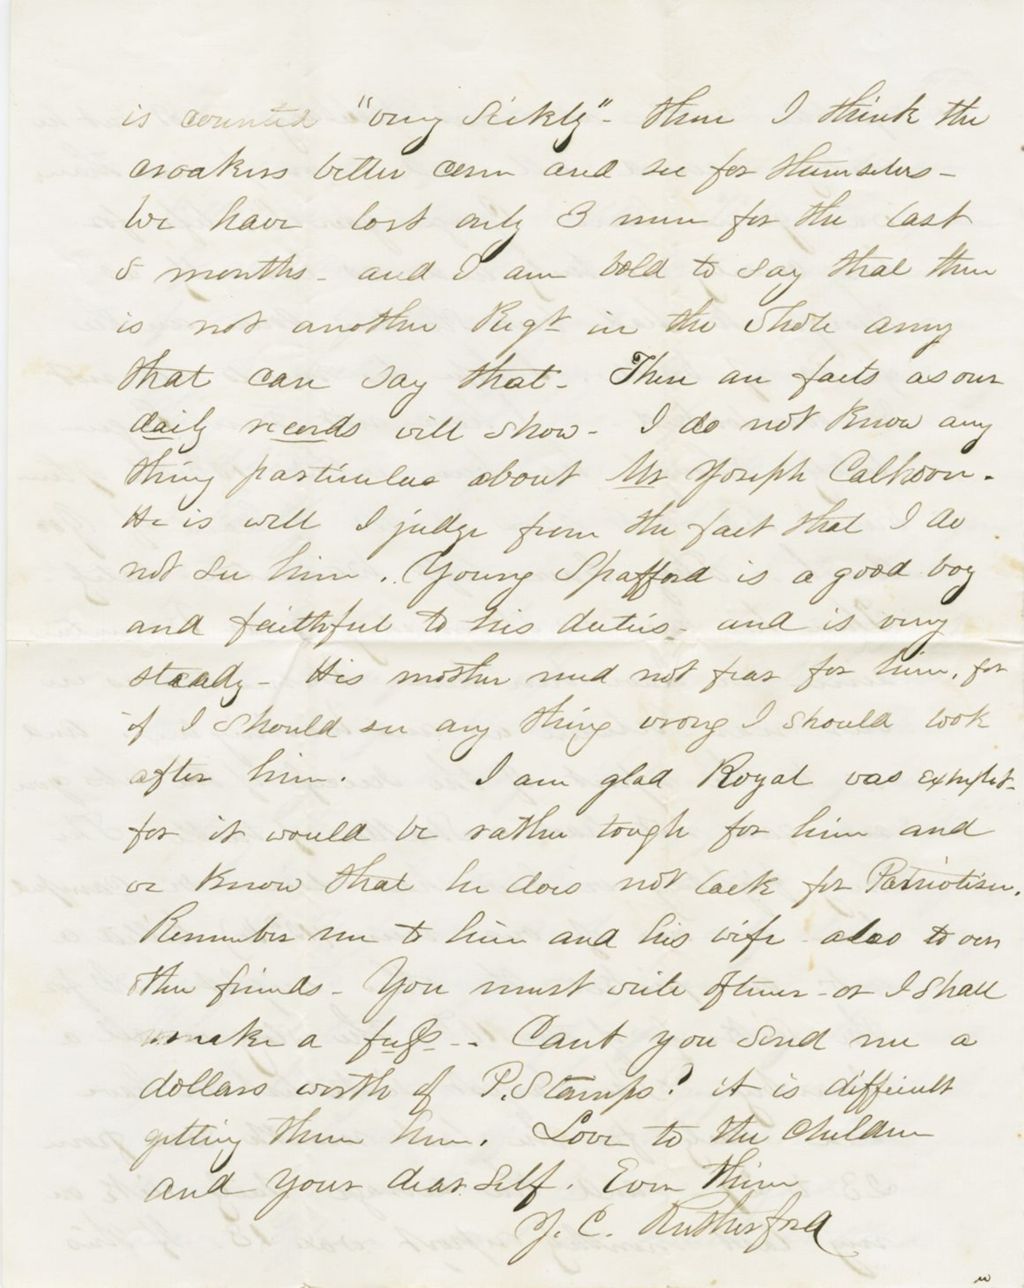 is counted "very sickly" - then I think the
croakers better come and see for themselves -
We have lost only 3 men for the last
8 months - and I am bold to say that there
is not another Regt in the whole army
that can say that - These are facts as our
daily records will show - I do not know any
thing particular about Mr Joseph Calhoon.
He is well I judge from the fact that I do
not see him. Young Spafford is a good boy
and faithful to his duties - and is very
steady - His mother need not fear for him, for
if I should see any thing wrong I should look
after him. I am glad Royal was exempt -
for it would be rather tough for him and
we know that he does not lack for Patriotism.
Remember me to him and his wife also to our
other friends - You must write oftener - or I shall
make a fuss - - Cant you send me a
dollars worth of P. Stamps? it is difficult
getting them here. Love to the children
and your dear self. Ever Thine
J. C. Rutherford